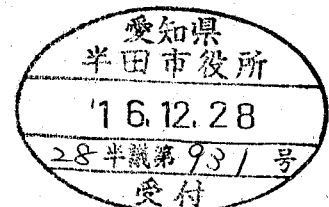 愛知県
半田市役所
'16.12.28
28半議第931号
受付